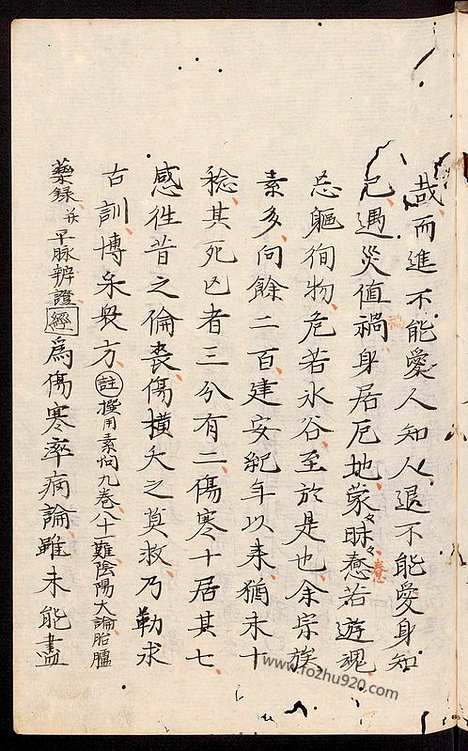 哉而進不能愛人知人退不能愛身知
己遇災值禍身居厄地蒙々昧々惷若遊魂
忘軀徇物危若冰谷至於是也余宗族
素多向餘二百建安紀年以来猶未十
稔其死亡者三分有二傷寒十居其七
感徃昔之倫喪傷橫夭之莫救乃勤求
古訓博采衆方註撰用素問九卷八十一難陰陽大論胎臚
藥録并平脉辨證經為傷寒卒病論雖未能盡
www.fozhu920.com